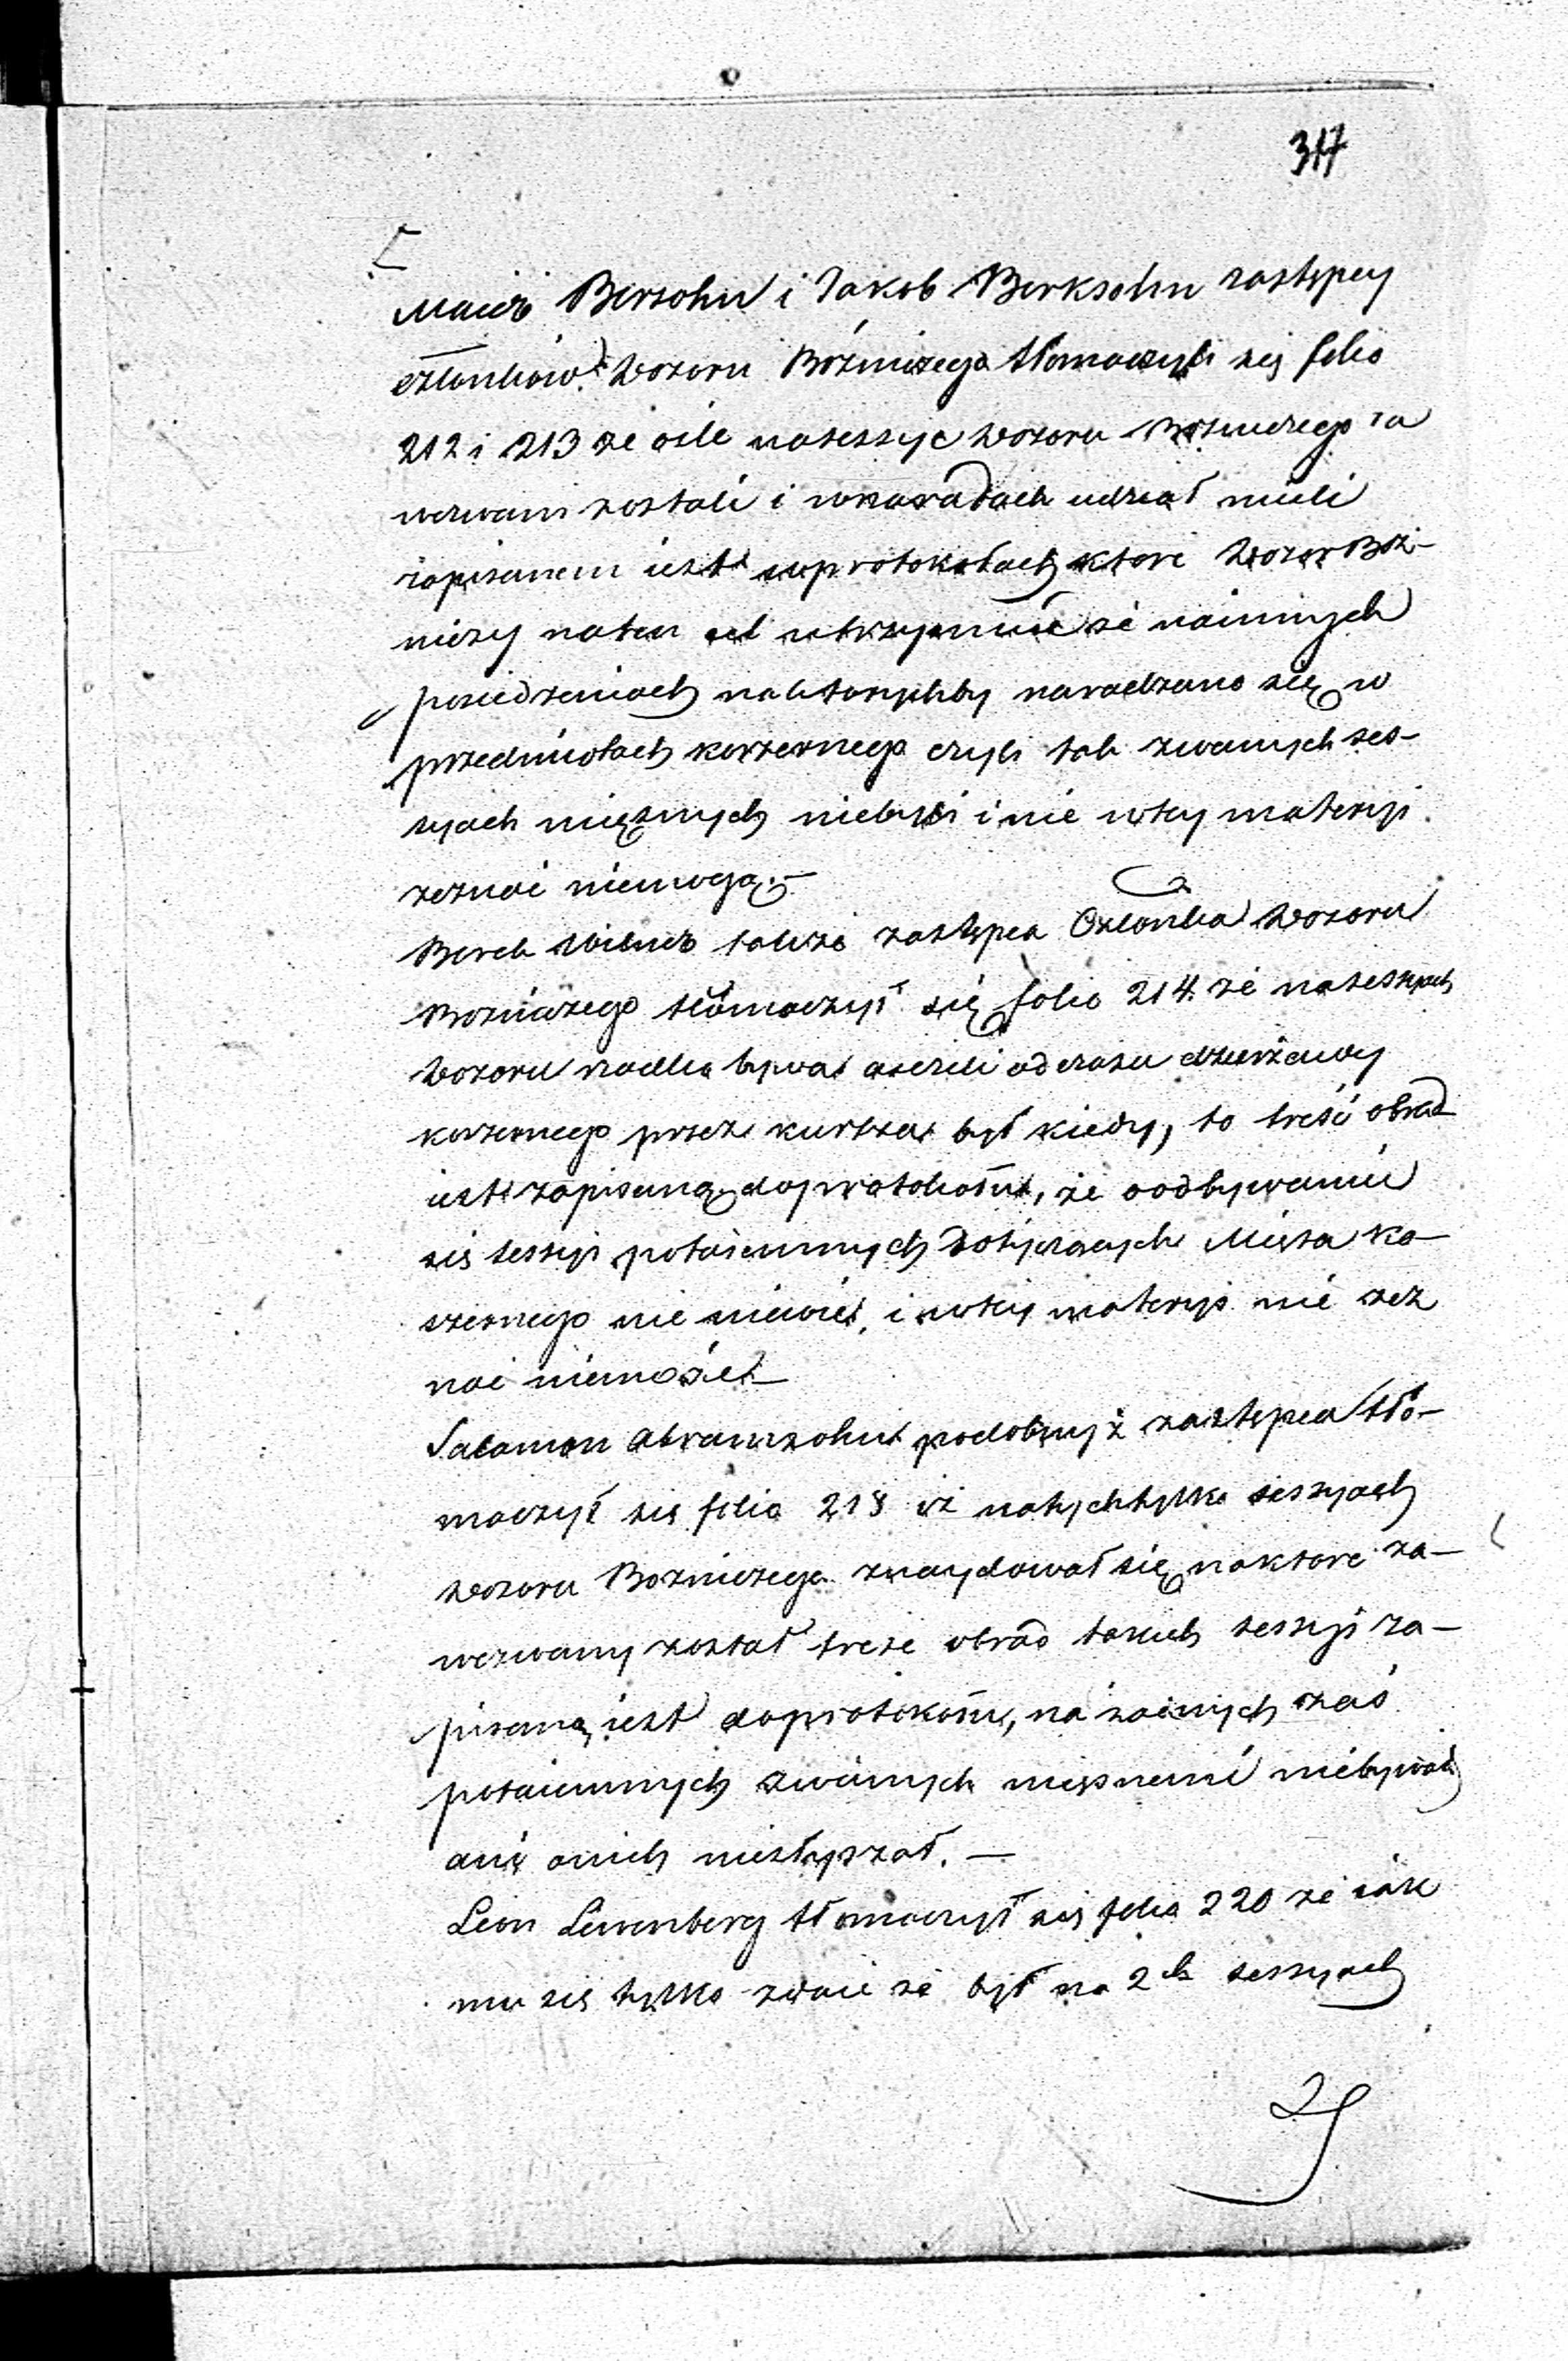 317
Maier Bersohn i Jakob Berksohn zastępcy
członków Dozoru Bóżniczego tłomaczyli się folio
212 i 213 że oile nasessye Dozoru Bożniczego za
wezwani zostali i wnaradach udział mieli
zapisanem iest wprotokołach które Dozor Boż-
niczy naten cel utrzymuie że nainnych
posiedzeniach naktorychby naradzano się w
przedmiotach koszernego czyli tak zwanych ses-
syach mięsnych niebyli i nic wtey materyi
zeznać niemogą.–
Berek Wilner także zastępca Członka Dozoru
Bożniczego tłómaczył się folio 214. że nasessyach
Dozoru rzadko bywał a ieżeli od czasu dzierżawy
koszernego przez był kiedy, to treść obrad
iest zapisaną doprotokołu, że oodbywaniu
się sessyi potaiemnych dotyczących Mięsa ko-
szernego nic niewie, i wtey materyi nic zez
nać niemoże.–
Salamon Abramsohn podobnyż zastępca tło-
maczył się folio 218 iż natychtylko sessyach
Dozoru Bożniczego znaydował się naktore za-
wezwany został treść obrad takich sessyi za-
pisaną iest doprotokołu, na żadnych zaś
potaiemnych zwanych mięsnemi niebywał
ani onich niesłyszał. –
Leon Lewenberg tłomaczył się folio 220 że iak
mu się tylko zdaie że był na 2ch sessyach